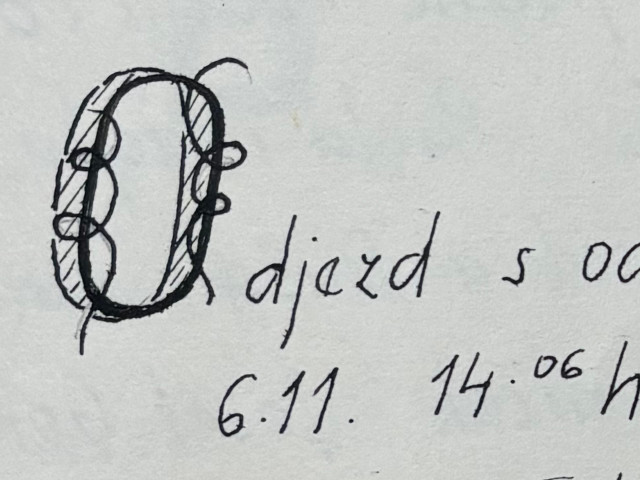 Odjezd s
6.11. 14.06 h